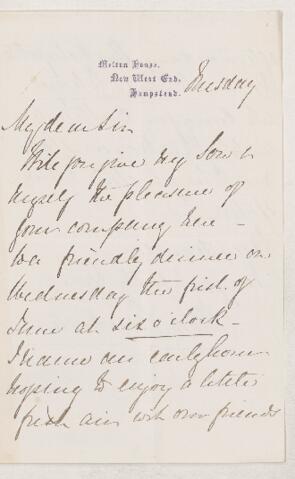 Melton House.
New West End.
Hampstead.
Tuesday
My dear Sir
Will you give my Son &
myself the pleasure of
your company here —
to a friendly dinner on
Wednesday the first of
June at six o'clock —
I name an early hour
hoping to enjoy a little
fresh air with our friends